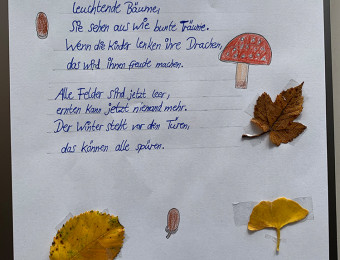 leuchtende Bäume,
Sie sehen aus wie bunte Träume.
Wenn die Kinder lenken ihre Drachen,
das wird ihnen freude machen.
Alle Felder sind jetzt leer,
ernten kann jetzt niemant mehr.
Der Winter steht vor den Türen,
das können alle spüren.